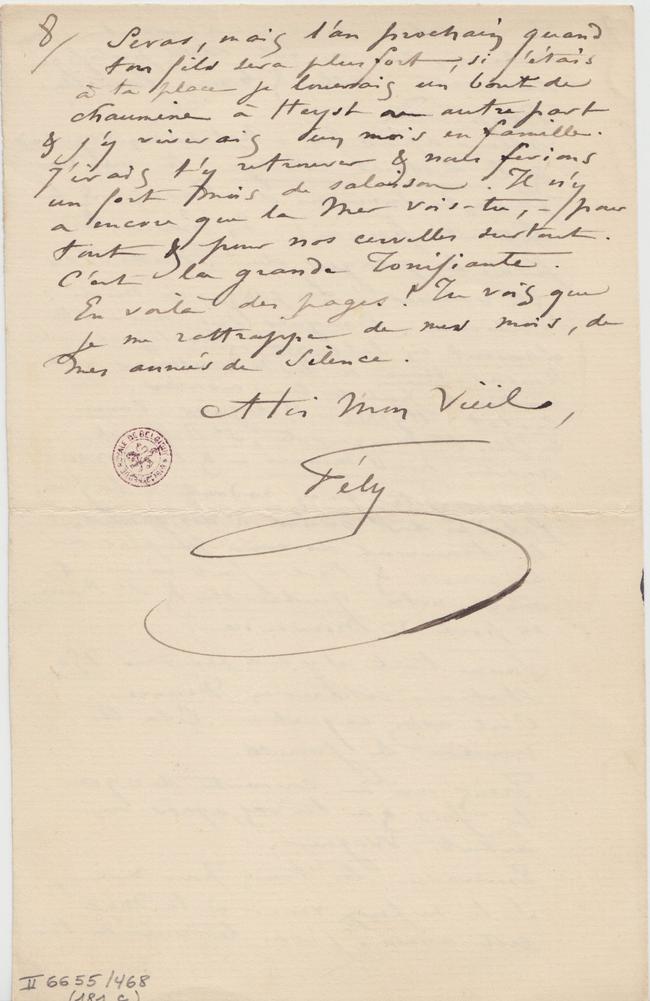 8/
Seras, mais l'an prochain quand
ton fils sera plus fort, si j'étais
à ta place je louerais un bout de
chaumine à Heyst ou autre part
& j'y viverais un mois en famille.
J'irais t'y retrouver & nous ferions
un fort mois de salaison. Il n'y
a encore que la Mer vois-tu, – pour
tout & pour nos cervelles surtout.
C'est la grande Tonifiante.
En voilà des pages! Tu vois que
je me rattrappe de mes mois, de
mes années de Silence.
A toi Mon Vieil,
Fély
II 6655/468
(181 c)